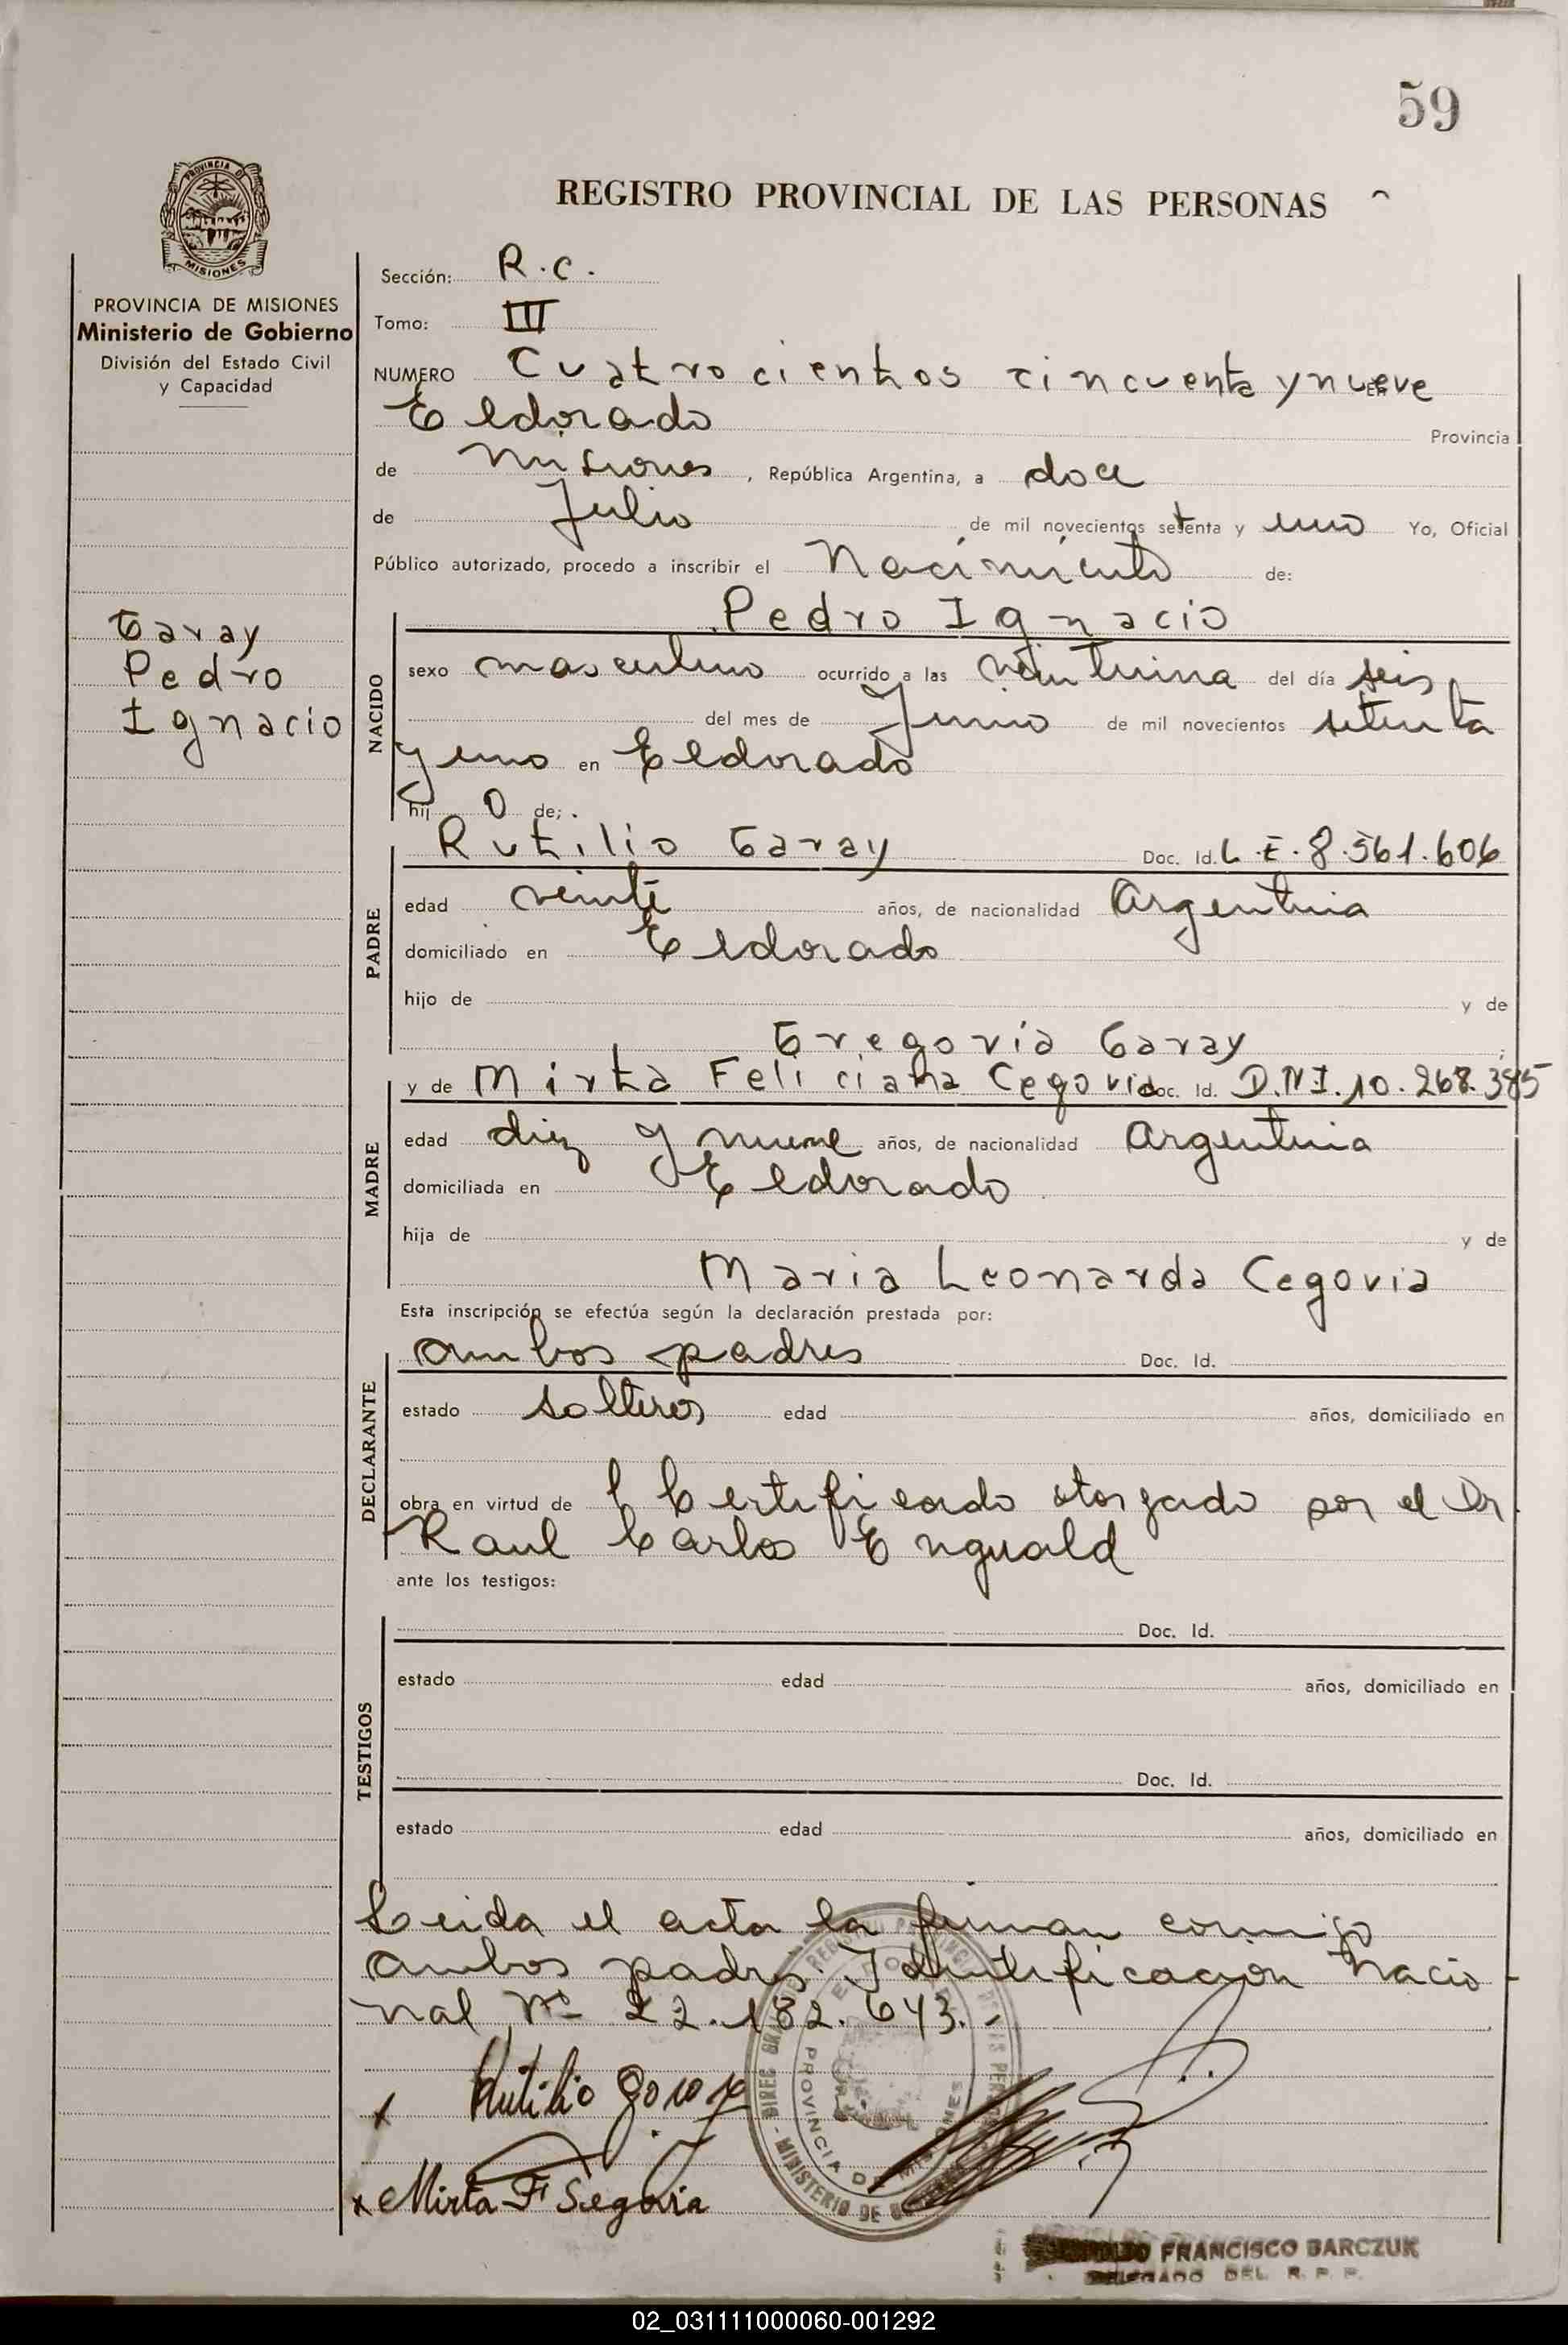 59
PROVINCIA DE
MISIONES
REGISTRO PROVINCIAL DE LAS PERSONAS
PROVINCIA DE MISIONES
Ministerio de Gobierno
División del Estado Civil
y Capacidad
Sección: R.C.
Tomo: III
NUMERO Cuatrocientos cincuenta y nueve
Eldorado Provincia
de Misiones, República Argentina, a doce
de Julio de mil novecientos setenta y uno Yo, Oficial
Público autorizado, procedo a inscribir el Nacimiento de:
Garay
Pedro
Ignacio
NACIDO
Pedro Ignacio
sexo masculino ocurrido a las veintiuna del día seis
del mes de Junio de mil novecientos setenta
y uno en Eldorado
hij o de;
PADRE
Rutilio Garay Doc. Id. L.E. 8.561.606
edad veinte años, de nacionalidad Argentina
domiciliado en Eldorado
hijo de y de
Gregoria Garay
MADRE
y de Mirta Feliciana Cegovia Doc. Id. D.N.I. 10.268.385
edad diez y nueve años, de nacionalidad Argentina
domiciliada en Eldorado
hija de y de
Maria Leonarda Cegovia
Esta inscripción se efectúa según la declaración prestada por:
DECLARANTE
ambos padres Doc. Id.
estado solteros edad años, domiciliado en
obra en virtud de Certificado otorgado por el Dr
Raul Carlos Enguald
ante los testigos:
TESTIGOS
Doc. Id.
estado edad años, domiciliado en
Doc. Id.
estado edad años, domiciliado en
Leida el acta la firman conmigo
ambos padres. Identificación Nacio-
nal Nº 22.182.643.-
x Rutilio Garay
x Mirta F Segovia
FRANCISCO BARCZUK
DELEGADO DEL R. P. P.
02_031111000060-001292